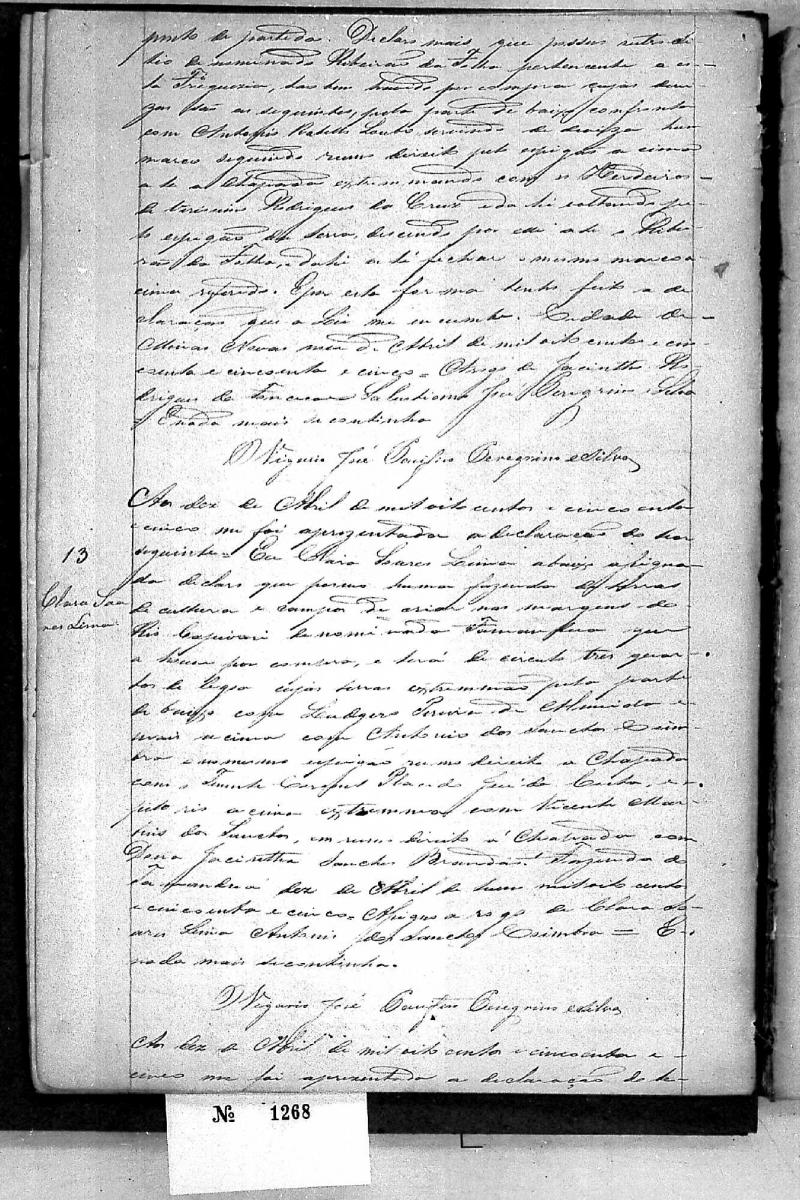 ponto de partida. Declaro mais que possuo outro si-
tio denominado Ribeirão da Folha pertencente a es-
ta Freguezia, havido por compra cujas devi-
zas são as seguintes, pela parte de baixo confronta
com Antonio servindo de deviza hum
marco seguindo rumo direito pelo espigão a cima
a te a Chapada extremmando com os Herdeiros
de Rodrigues da Cruz e da hi voltando pe-
lo espigão da Serra, descendo por elle a te o Ribei-
rão da Folha, e dahi a té fechar o mesmo marco a
cima referido. E por esta forma tenho feito a de
claração que a Lei me incumbe. Cidade de
Minas Novas de Abril de mil oito centos e cin-
coenta e cinco = A rogo de Jacintho Ro
drigues da Fonceca Salustiano José Peregrino e Silva
E nada mais se continha
O Vigario José Pacifico Peregrino e Silva
Aos dez de Abril de mil oito centos e cincoenta
e cinco me foi aprezentada a declaração do theor
seguinte = Eu Clara Soares Lima abaixo assigna
da declaro que possuo huma fazenda de terras
de cultura e campos de criar nas margens do
Rio Capivari denominada Tamanduá que
a houve por compra, e terá de circulo tres quar-
tos de legoa cujas terras extremmão pela parte
de baixo com Ludgero Pereira de Almeida e
mais a cima com Antonio dos Sanctos Coim
bra e no mesmo espigão rumo direito a Chapada
com o Tenente Coronel Placido José da Costa, e
pelo rio a cima extremma com Vicente Mar
tins dos Sanctos, em rumo direito á Chapada com
Dona Jacintha Sanches Brandão. Fazenda do
Tamanduá dez de Abril de hum mil oito centos
e cincoenta e cinco = Assigno a rogo de Clara So-
ares Lima Antonio dos Sanctos Coimbra = E
nada mais se continha.
O Vigario José Pacifico Peregrino e Silva
Aos dez de Abril de mil oito centos e cincoenta e
cinco me foi aprezentada a declaração do te-
13
Clara Soa
res Lima
Nº 1268